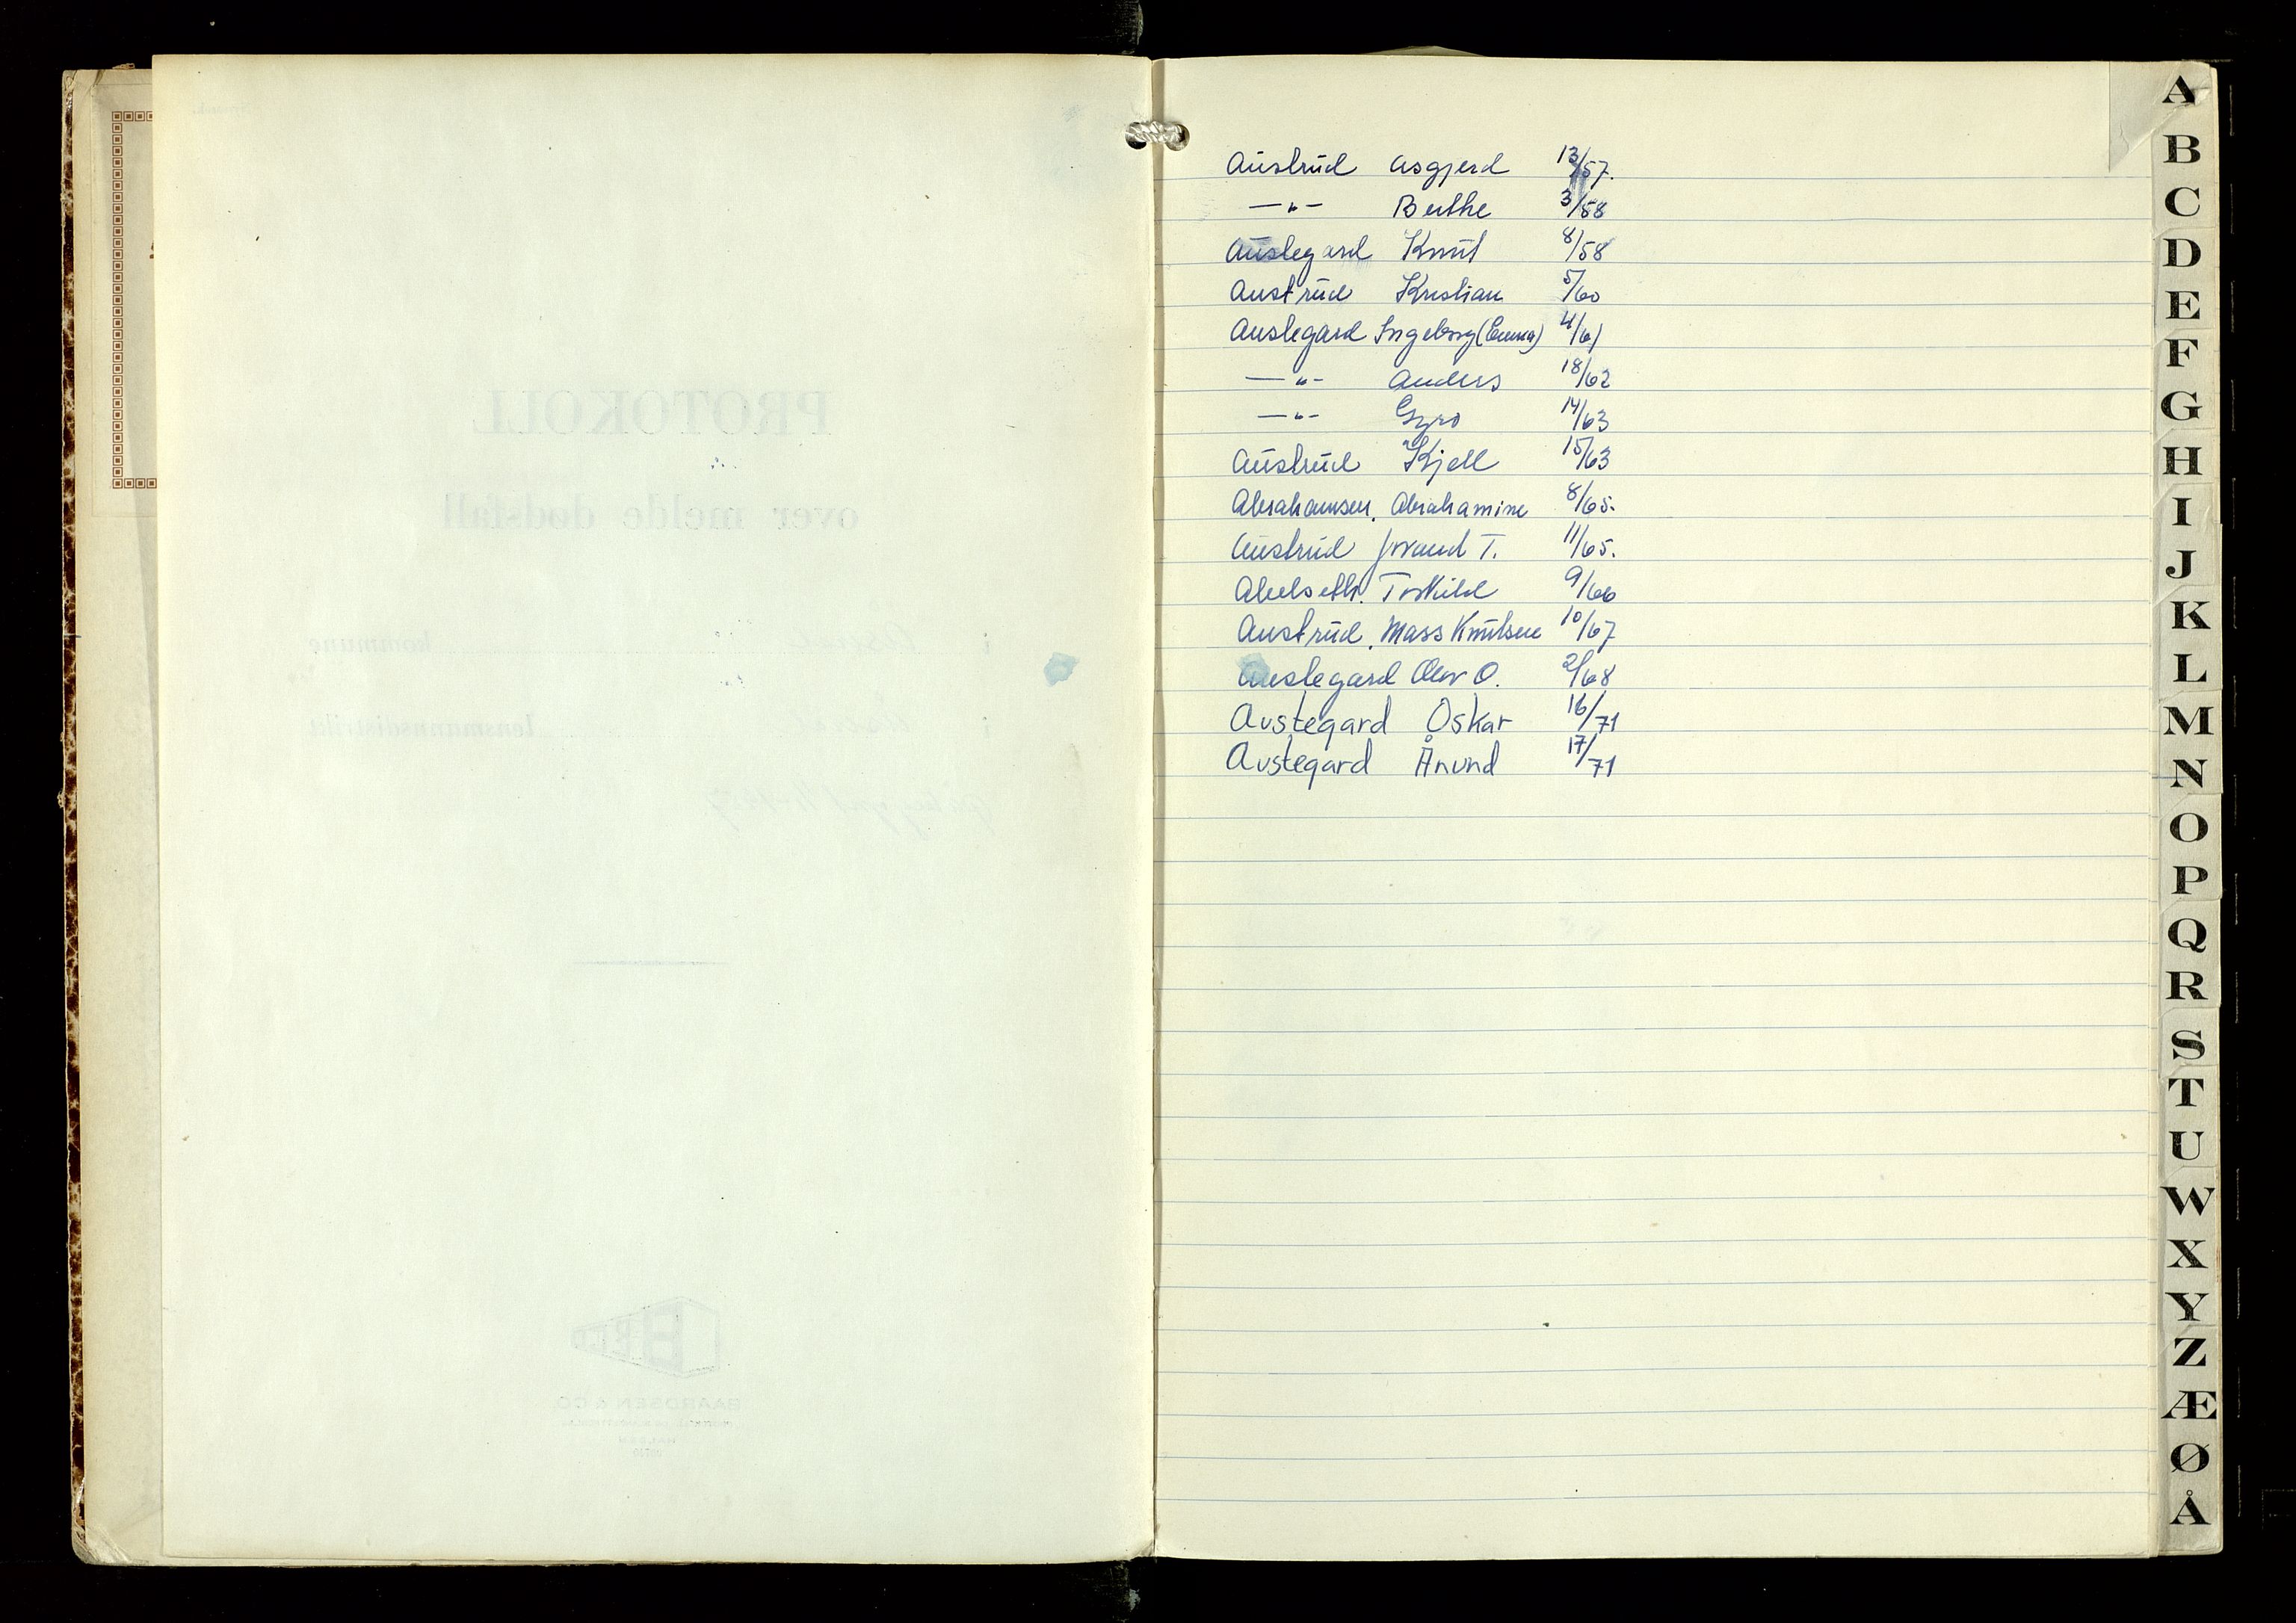 PROTOKOLL
over melde dødsfall
i kommune
i lensmannsdistrikt
BAARDSEN & CO.
HALDEN
Austrud Asgjerd 13/57.
—"— Berthe 3/58
Austegard Knut 8/58
Austrud Kristian 5/60
Austegard Ingeborg (Emma) 4/61
—"— Anders 18/62
—"— Gyro 14/63
Austrud Kjell 15/63
Abrahamsen, Abrahamine 8/65.
Austrud Jorand T. 11/65.
Abelseth, Torkild 9/66
Austrud, Mass Knutsen 10/67
Austegard Olav O. 2/68
Austegard Oskar 16/71
Austegard Ånund 17/71
A
B
C
D
E
F
G
H
I
J
K
L
M
N
O
P
Q
R
S
T
U
W
X
Y
Z
Æ
Ø
Å